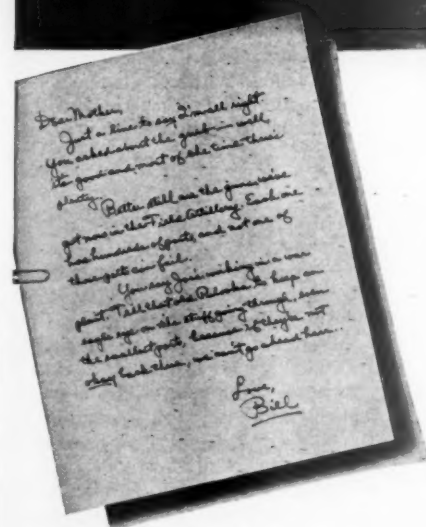 Dear Mother,
Just a line to say I'm all right.
You asked about the grub — well,
it's good and, most of the time there's
plenty.
Better still are the guns we've
got now in the Field Artillery. Each one
has hundreds of parts, and not one of
those parts can fail.
You say Jim's working in a war
plant. Tell that old to keep an
eagle eye on the stuff going through, even
the smallest parts, because if they're not
okay back there, we can't go ahead here..
Love,
Bill